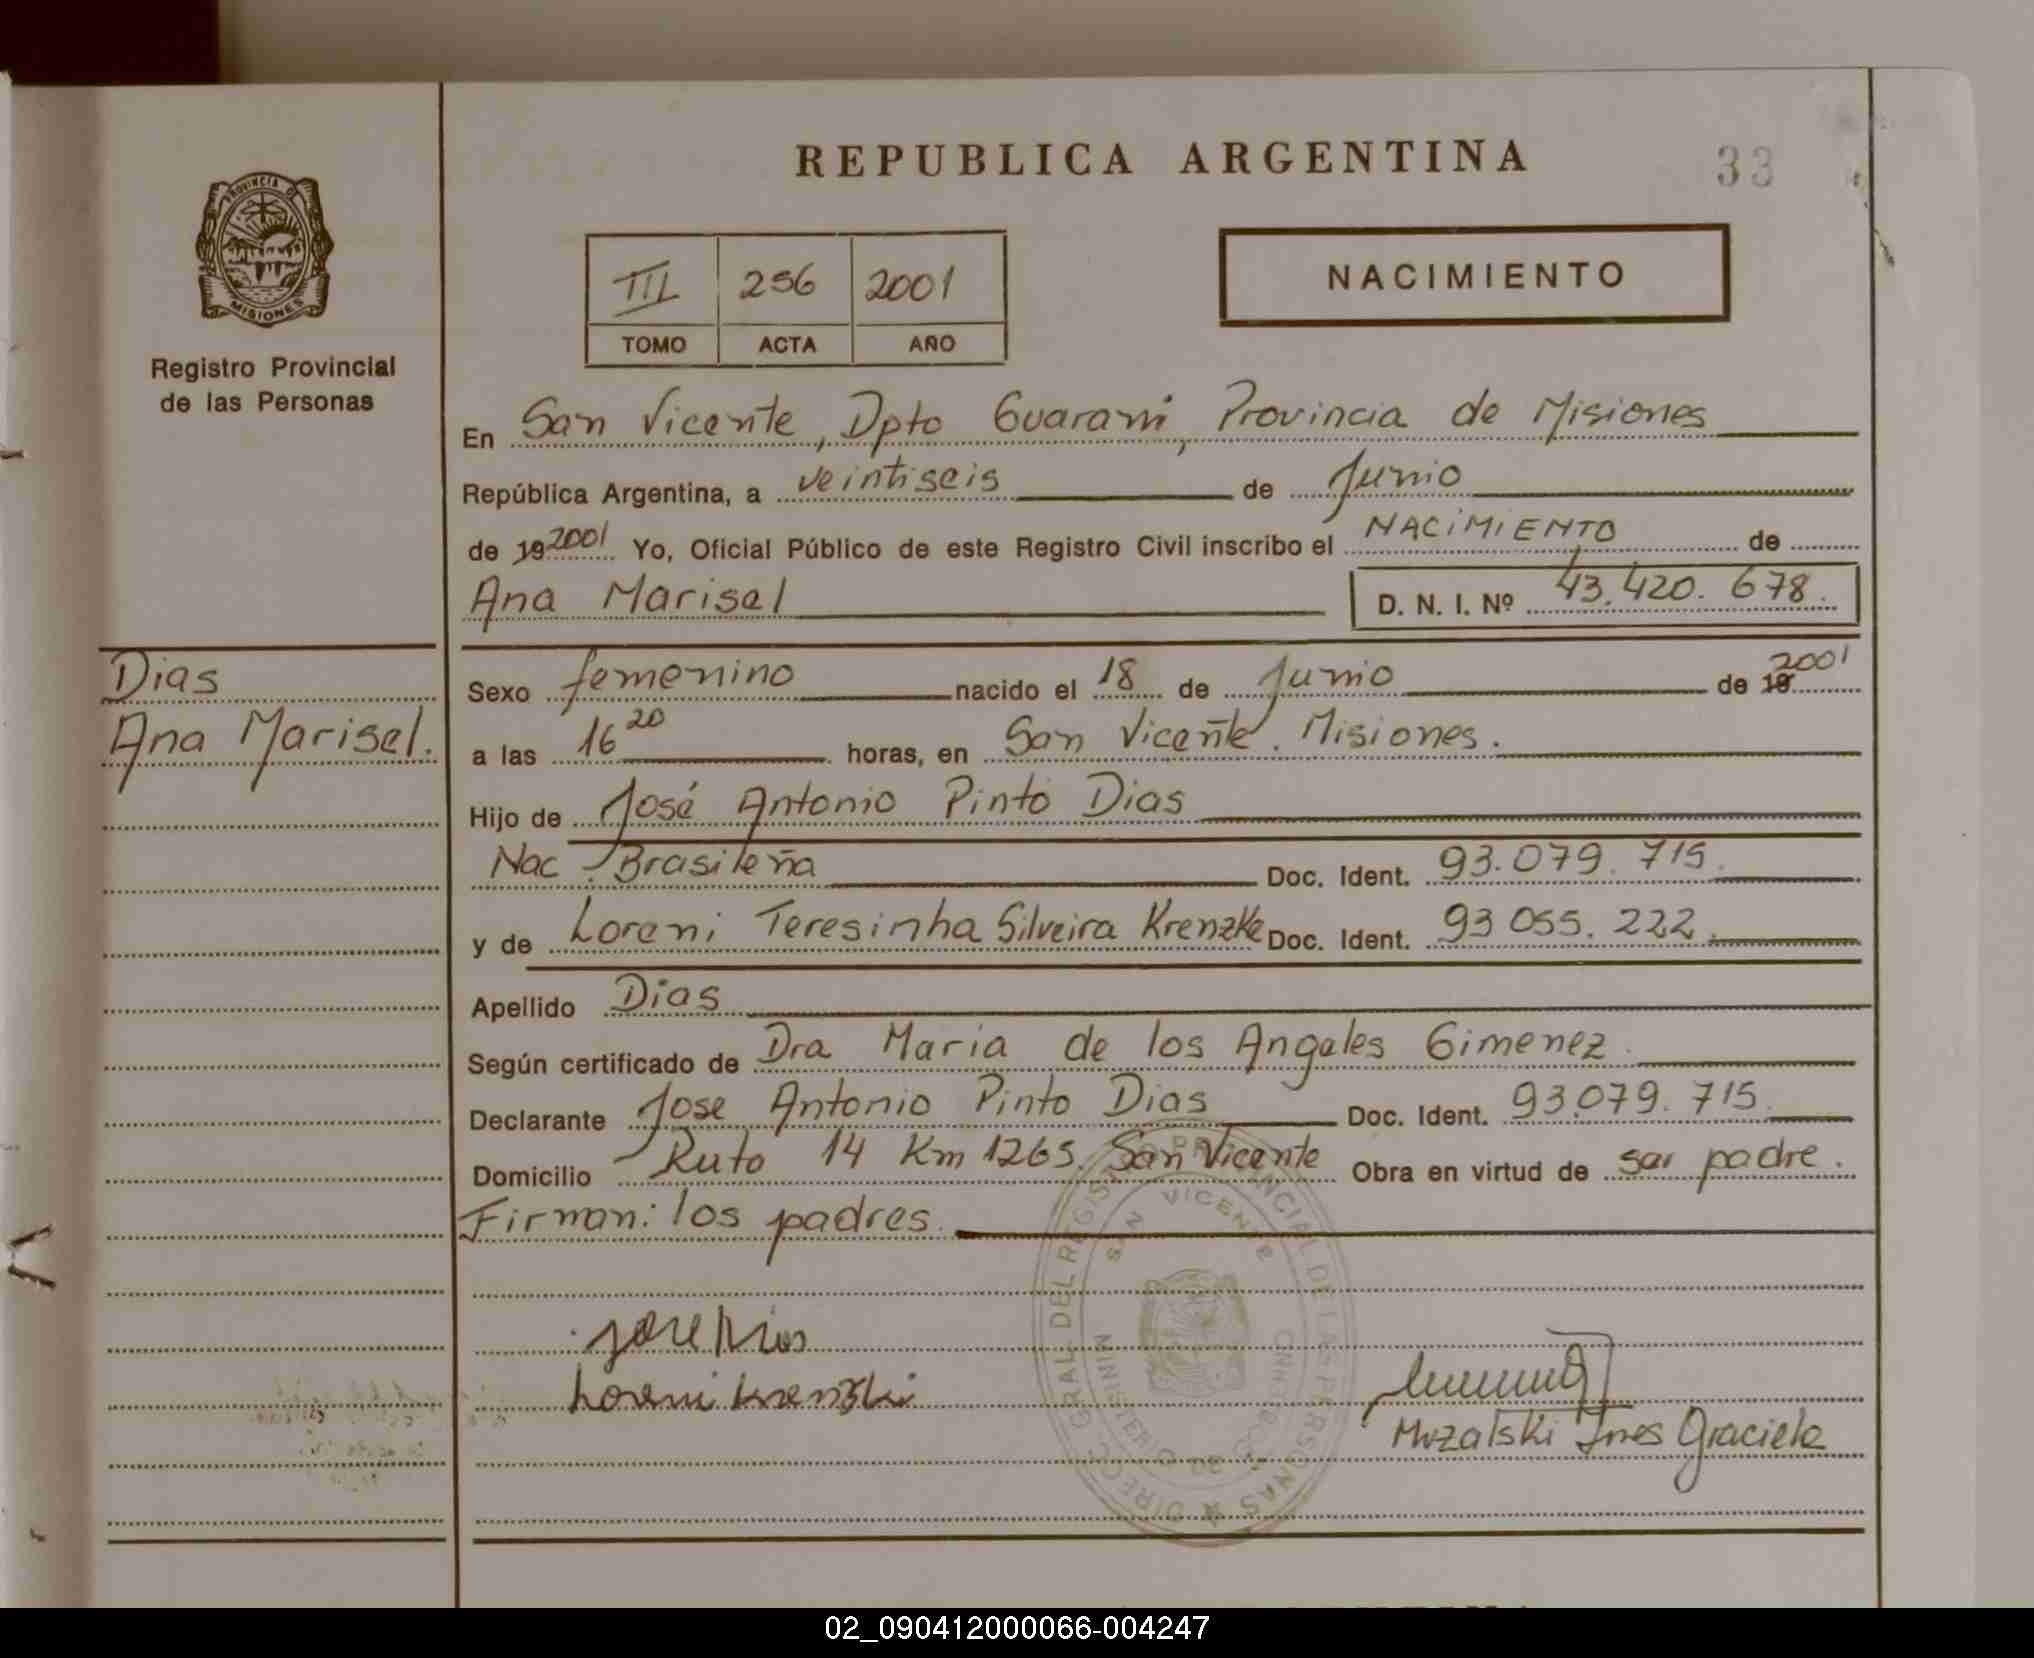 REPUBLICA ARGENTINA
33
PROVINCIA DE
MISIONES
Registro Provincial
de las Personas
III 256 2001
TOMO ACTA AÑO
NACIMIENTO
En San Vicente, Dpto Guarani, Provincia de Misiones
República Argentina, a veintiseis de Junio
de 19 2001 Yo, Oficial Público de este Registro Civil inscribo el NACIMIENTO de
Ana Marisel D. N. I. Nº 43.420.678.
Dias
Ana Marisel.
Sexo femenino nacido el 18 de Junio de 19 2001
a las 16 20 horas, en San Vicente. Misiones.
Hijo de José Antonio Pinto Dias
Nac. Brasileña Doc. Ident. 93.079.715.
y de Loreni Teresinha Silveira Krenzke Doc. Ident. 93 055.222.
Apellido Dias
Según certificado de Dra Maria de los Angeles Gimenez.
Declarante Jose Antonio Pinto Dias Doc. Ident. 93.079.715.
Domicilio Ruta 14 Km 1265. San Vicente Obra en virtud de ser padre.
Firman: los padres.
DIRECC. GRAL. DEL REGISTRO PROVINCIAL DE LAS PERSONAS
SAN VICENTE
MINISTERIO DE GOBIERNO
Jose Dias
Loreni Krenzki
Muzalski Ines Graciela
02_090412000066-004247